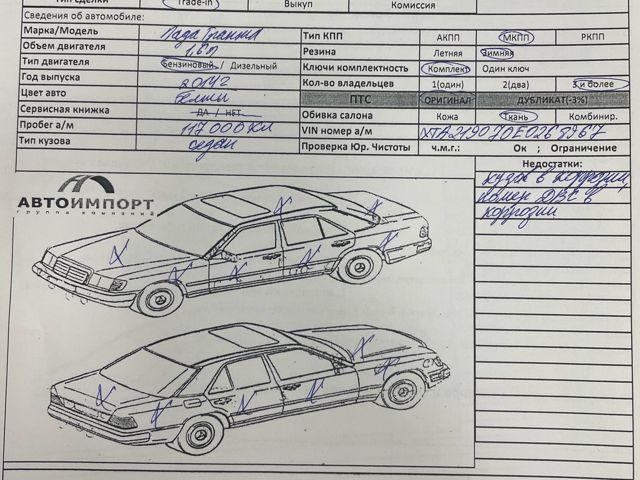 Тип сделки Trade-in Выкуп Комиссия
Сведения об автомобиле:
Марка/Модель Лада Гранта Тип КПП АКПП МКПП РКПП
Объем двигателя 1,6л Резина Летняя Зимняя
Тип двигателя Бензиновый / Дизельный Ключи комплектность Комплект Один ключ
Год выпуска 2014г Кол-во владельцев 1(один) 2(два) 3 и более
Цвет авто белый ПТС ОРИГИНАЛ ДУБЛИКАТ(-3%)
Сервисная книжка ДА / НЕТ Обивка салона Кожа Ткань Комбинир.
Пробег а/м 117 000 км VIN номер а/м
Тип кузова седан Проверка Юр. Чистоты ч.м.г.: Ок ; Ограничение
Недостатки:
кузов в коррозии,
номер ДВС в
коррозии
АВТОИМПОРТ
группа компаний